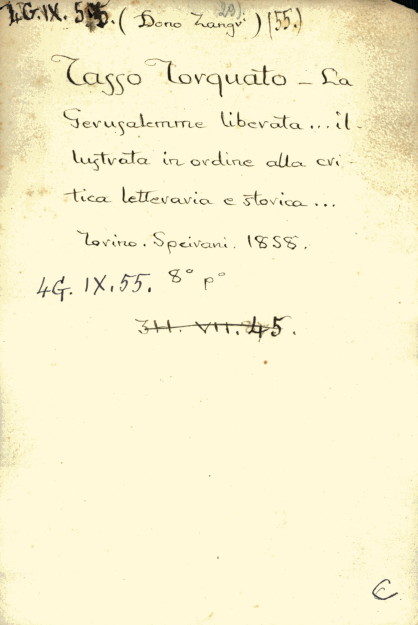 4G.IX.55. (Dono Zangri) (55.)
Tasso Torquato - La
Gerusalemme liberata... il-
lustrata in ordine alla cri-
tica letteraria e storica...
Torino. Speirani. 1858.
4G. IX. 55. 8° p°
3H. VII. 45.
C